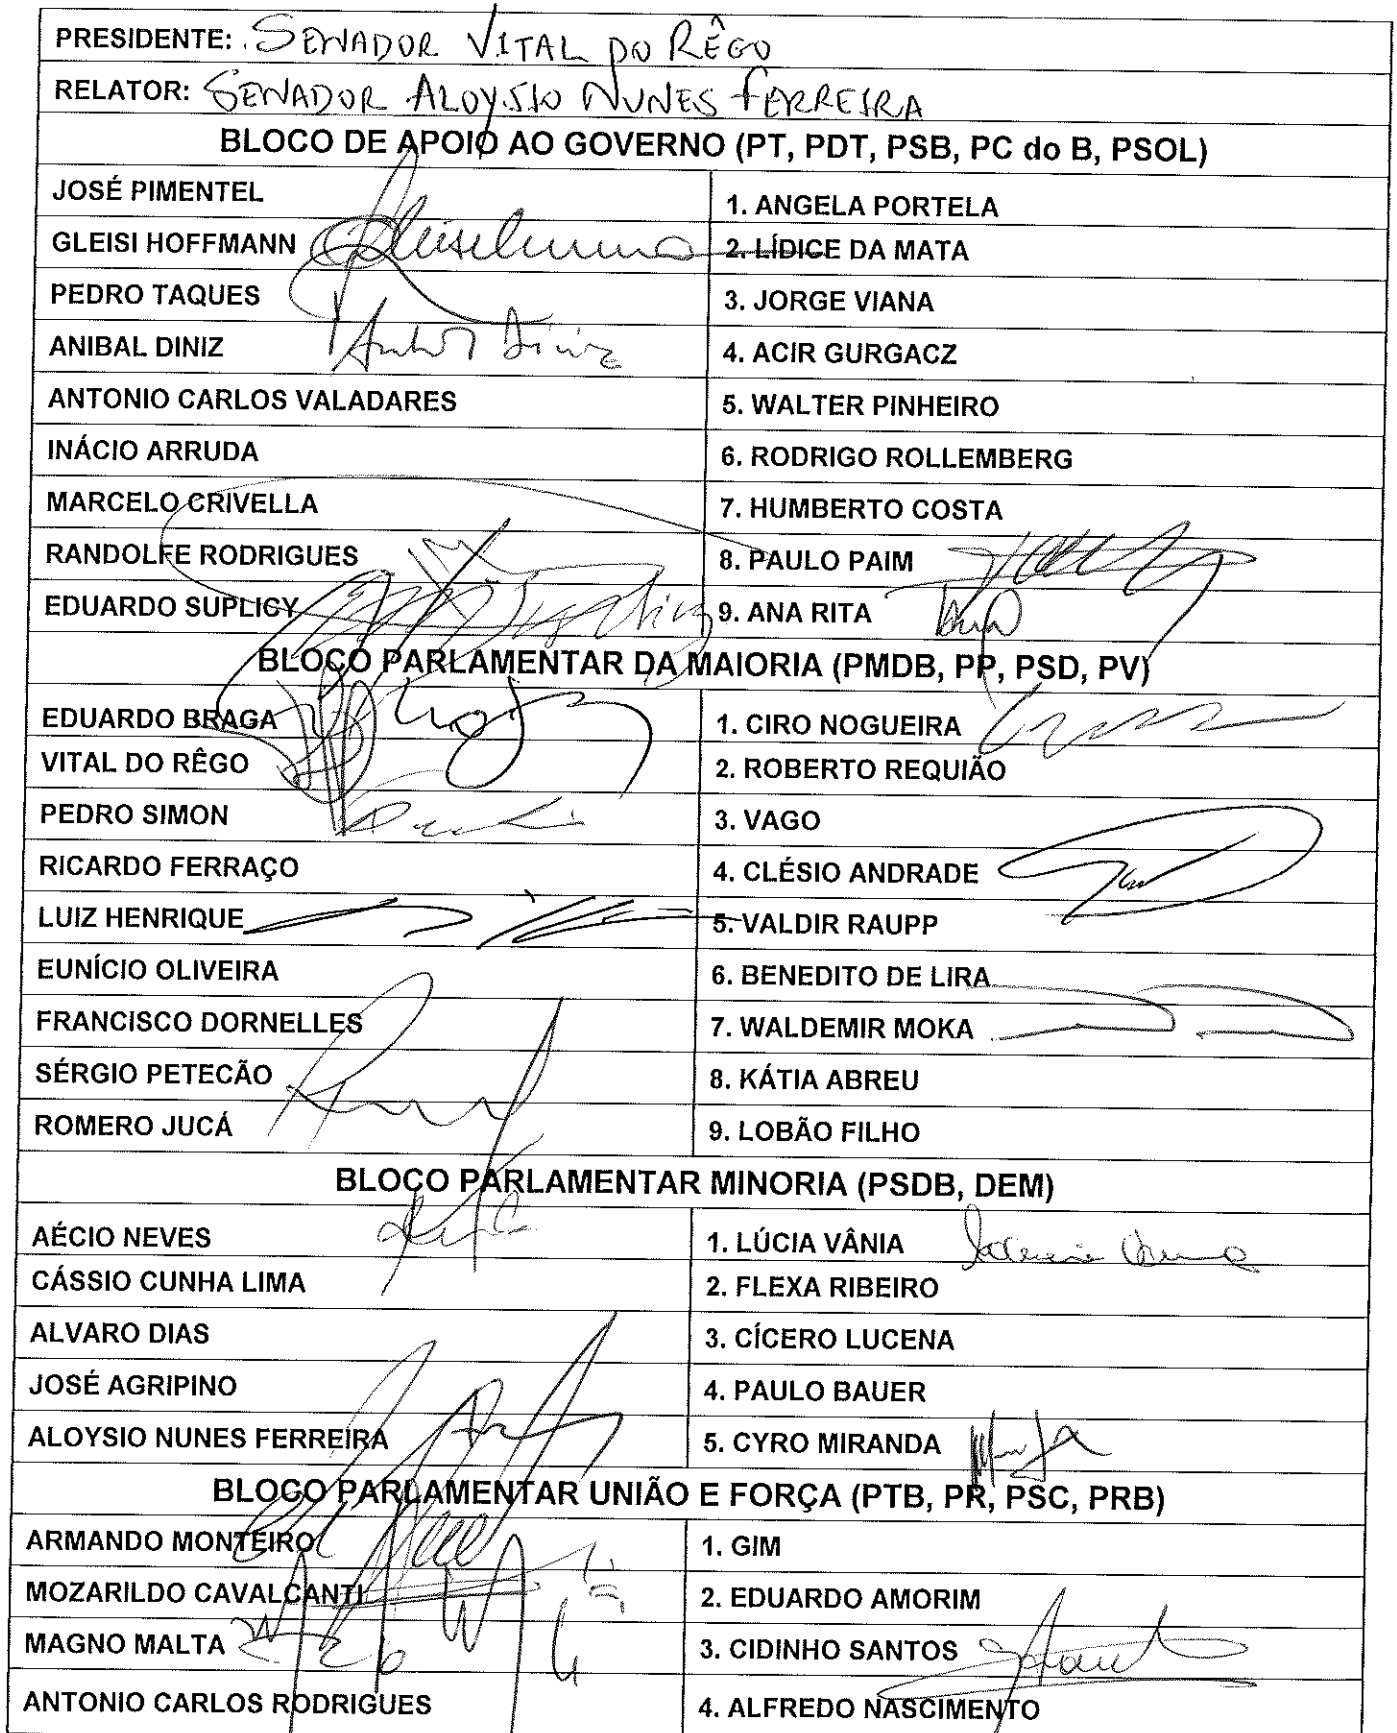 PRESIDENTE: SENADOR VITAL DO RÊGO
RELATOR: SENADOR ALOYSIO NUNES FERREIRA
BLOCO DE APOIO AO GOVERNO (PT, PDT, PSB, PC do B, PSOL)
JOSÉ PIMENTEL 1. ANGELA PORTELA
GLEISI HOFFMANN 2. LÍDICE DA MATA
PEDRO TAQUES 3. JORGE VIANA
ANIBAL DINIZ 4. ACIR GURGACZ
ANTONIO CARLOS VALADARES 5. WALTER PINHEIRO
INÁCIO ARRUDA 6. RODRIGO ROLLEMBERG
MARCELO CRIVELLA 7. HUMBERTO COSTA
RANDOLFE RODRIGUES 8. PAULO PAIM
EDUARDO SUPLICY 9. ANA RITA
BLOCO PARLAMENTAR DA MAIORIA (PMDB, PP, PSD, PV)
EDUARDO BRAGA 1. CIRO NOGUEIRA
VITAL DO RÊGO 2. ROBERTO REQUIÃO
PEDRO SIMON 3. VAGO
RICARDO FERRAÇO 4. CLÉSIO ANDRADE
LUIZ HENRIQUE 5. VALDIR RAUPP
EUNÍCIO OLIVEIRA 6. BENEDITO DE LIRA
FRANCISCO DORNELLES 7. WALDEMIR MOKA
SÉRGIO PETECÃO 8. KÁTIA ABREU
ROMERO JUCÁ 9. LOBÃO FILHO
BLOCO PARLAMENTAR MINORIA (PSDB, DEM)
AÉCIO NEVES 1. LÚCIA VÂNIA
CÁSSIO CUNHA LIMA 2. FLEXA RIBEIRO
ALVARO DIAS 3. CÍCERO LUCENA
JOSÉ AGRIPINO 4. PAULO BAUER
ALOYSIO NUNES FERREIRA 5. CYRO MIRANDA
BLOCO PARLAMENTAR UNIÃO E FORÇA (PTB, PR, PSC, PRB)
ARMANDO MONTEIRO 1. GIM
MOZARILDO CAVALCANTI 2. EDUARDO AMORIM
MAGNO MALTA 3. CIDINHO SANTOS
ANTONIO CARLOS RODRIGUES 4. ALFREDO NASCIMENTO